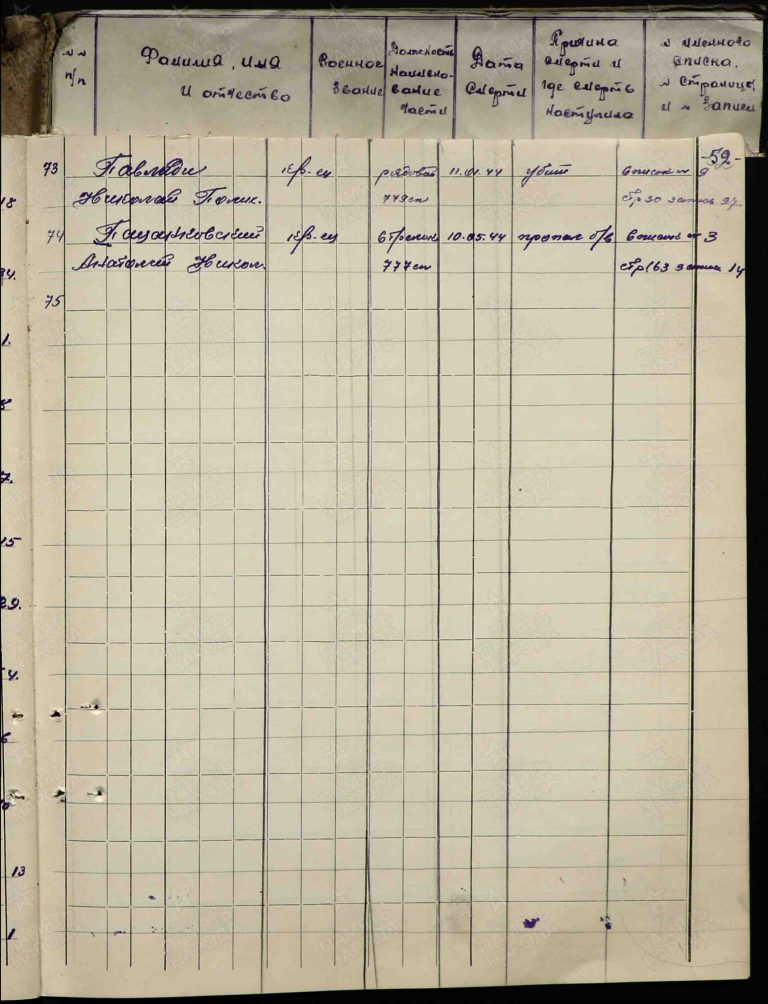 №№ п/п Фамилия, имя и отчество Военное звание Должность наименование части Дата смерти Причина смерти и где смерть наступила № именного списка, № страницы и № записи
-52-
73 Павлиди кр-ец рядовой 11.01.44 убит список № 9
Николай Полик. 779 сп стр 30 запись
74 Пацановский кр-ец стрелок 10.05.44 пропал б/в список № 3
Анатолий Никол. 777 сп стр 163 запись 14
75
18
34.
1.
8
7.
15
29.
4.
6
13
1